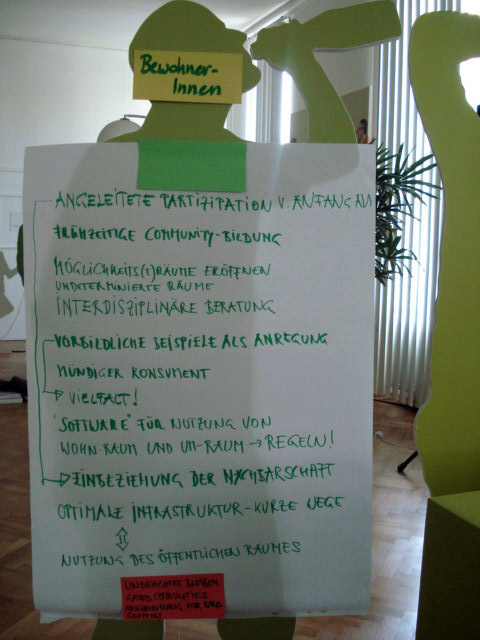 Bewohner-
Innen
ANGELEITETE PARTIZIPATION V. ANFANG AN
FRÜHZEITIGE COMMUNITY-BILDUNG
MÖGLICHKEITS(T)RÄUME ERÖFFNEN
UNDETERMINIERTE RÄUME
INTERDISZIPLINÄRE BERATUNG
VORBILDLICHE BEISPIELE ALS ANREGUNG
MÜNDIGER KONSUMENT
→ VIELFALT!
"SOFTWARE" FÜR NUTZUNG VON
WOHN-RAUM UND UM-RAUM → REGELN!
→ EINBEZIEHUNG DER NACHBARSCHAFT
OPTIMALE INFRASTRUKTUR - KURZE WEGE
⇕
NUTZUNG DES ÖFFENTLICHEN RAUMES
UNBEACHTET BLEIBEN
GATED COMMUNITIES
VON RAND
GRUPPEN